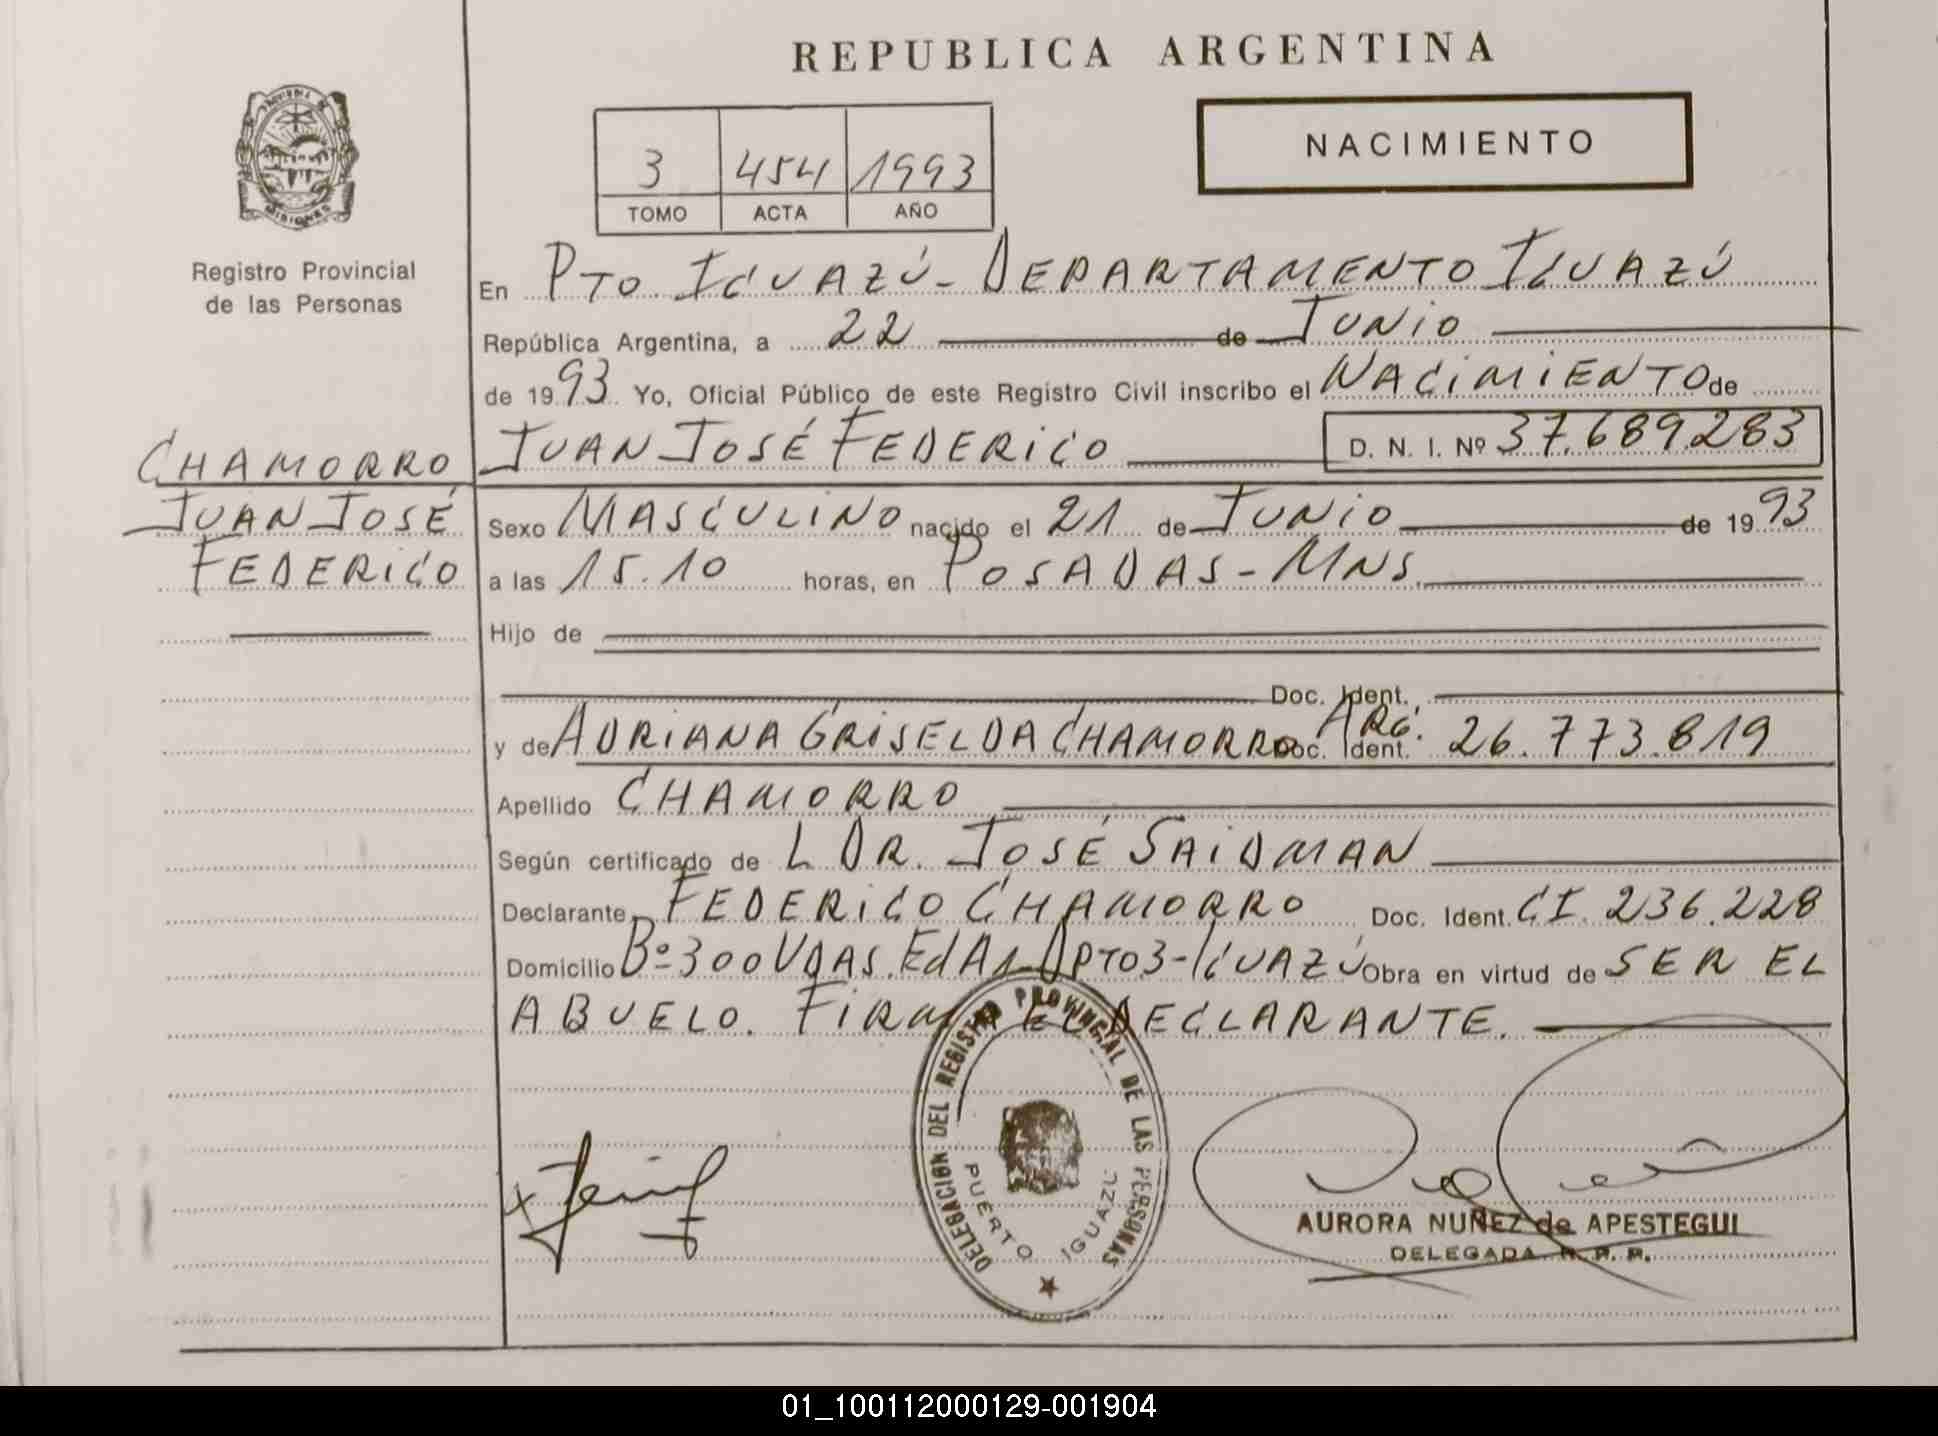 REPUBLICA ARGENTINA
NACIMIENTO
3 454 1993
TOMO ACTA AÑO
MISIONES
Registro Provincial
de las Personas
En PTO IGUAZÚ - DEPARTAMENTO IGUAZÚ
República Argentina, a 22 de JUNIO
de 1993. Yo, Oficial Público de este Registro Civil inscribo el NACIMIENTO de
JUAN JOSÉ FEDERICO D. N. I. Nº 37.689.283
CHAMORRO
JUAN JOSÉ
FEDERICO
Sexo MASCULINO nacido el 21 de JUNIO de 1993
a las 15.10 horas, en POSADAS - MNS.
Hijo de
Doc. Ident.
y de ADRIANA GRISELDA CHAMORRO Doc. Ident. ARG. 26.773.819
Apellido CHAMORRO
Según certificado de L DR. JOSÉ SAIDMAN
Declarante FEDERICO CHAMORRO Doc. Ident. CI. 236.228
Domicilio Bº 300 VDAS. Ed A1 DPTO 3 - IGUAZÚ Obra en virtud de SER EL
ABUELO. FIRMA EL DECLARANTE.
DELEGACION DEL REGISTRO PROVINCIAL DE LAS PERSONAS
PUERTO IGUAZU
AURORA NUÑEZ de APESTEGUI
DELEGADA R. P. P.
01_100112000129-001904